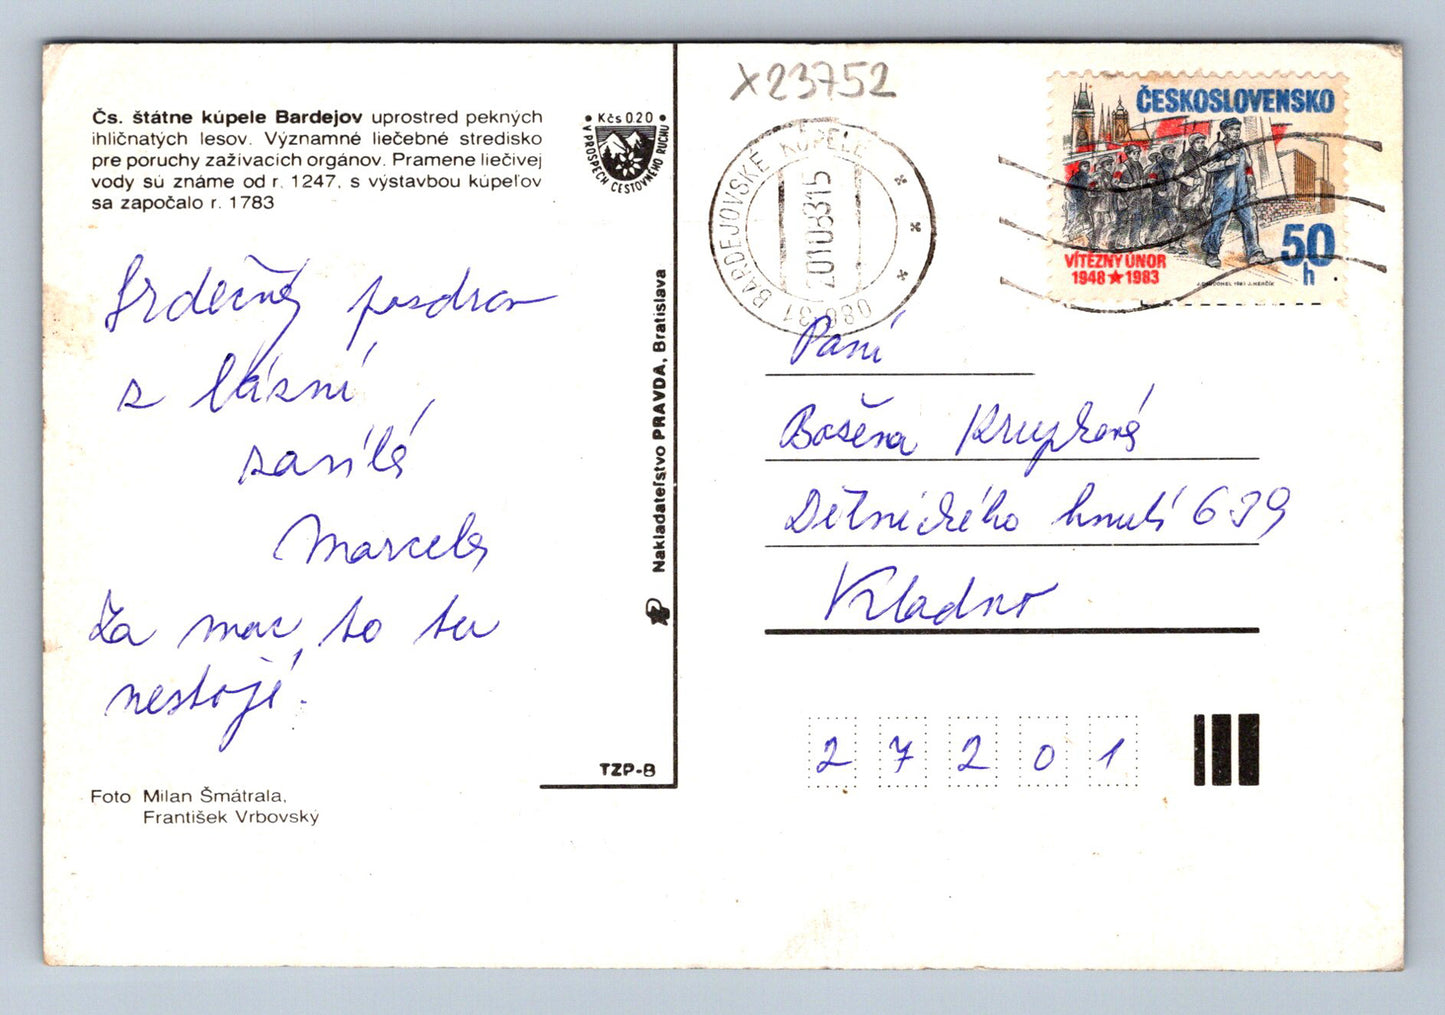 Čs. štátne kúpele Bardejov uprostred pekných
ihličnatých lesov. Významné liečebné stredisko
pre poruchy zažívacích orgánov. Pramene liečivej
vody sú známe od r. 1247, s výstavbou kúpeľov
sa započalo r. 1783
• Kčs 0.20 •
V PROSPECH CESTOVNÉHO RUCHU
Srdečný pozdrav
z lázní
zasílá
Marcela
Za moc to tu
nestojí.
Foto Milan Šmátrala,
František Vrbovský
Nakladateľstvo PRAVDA, Bratislava
TZP-8
X23752
086 31 BARDEJOVSKÉ KÚPELE
20.10.83.15
ČESKOSLOVENSKO
VÍTĚZNÝ ÚNOR
1948 ★ 1983
50
h
Paní
Božena Krupková
Dělnického hnutí 639
Kladno
27201